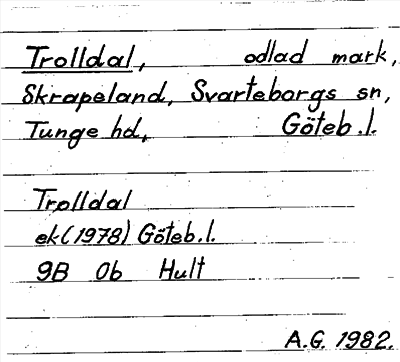 Trolldal, odlad mark,
Skrapeland, Svarteborgs sn,
Tunge hd, Göteb.l.
Trolldal
ek(1978) Göteb.l.
9B 0b Hult
A.G. 1982.